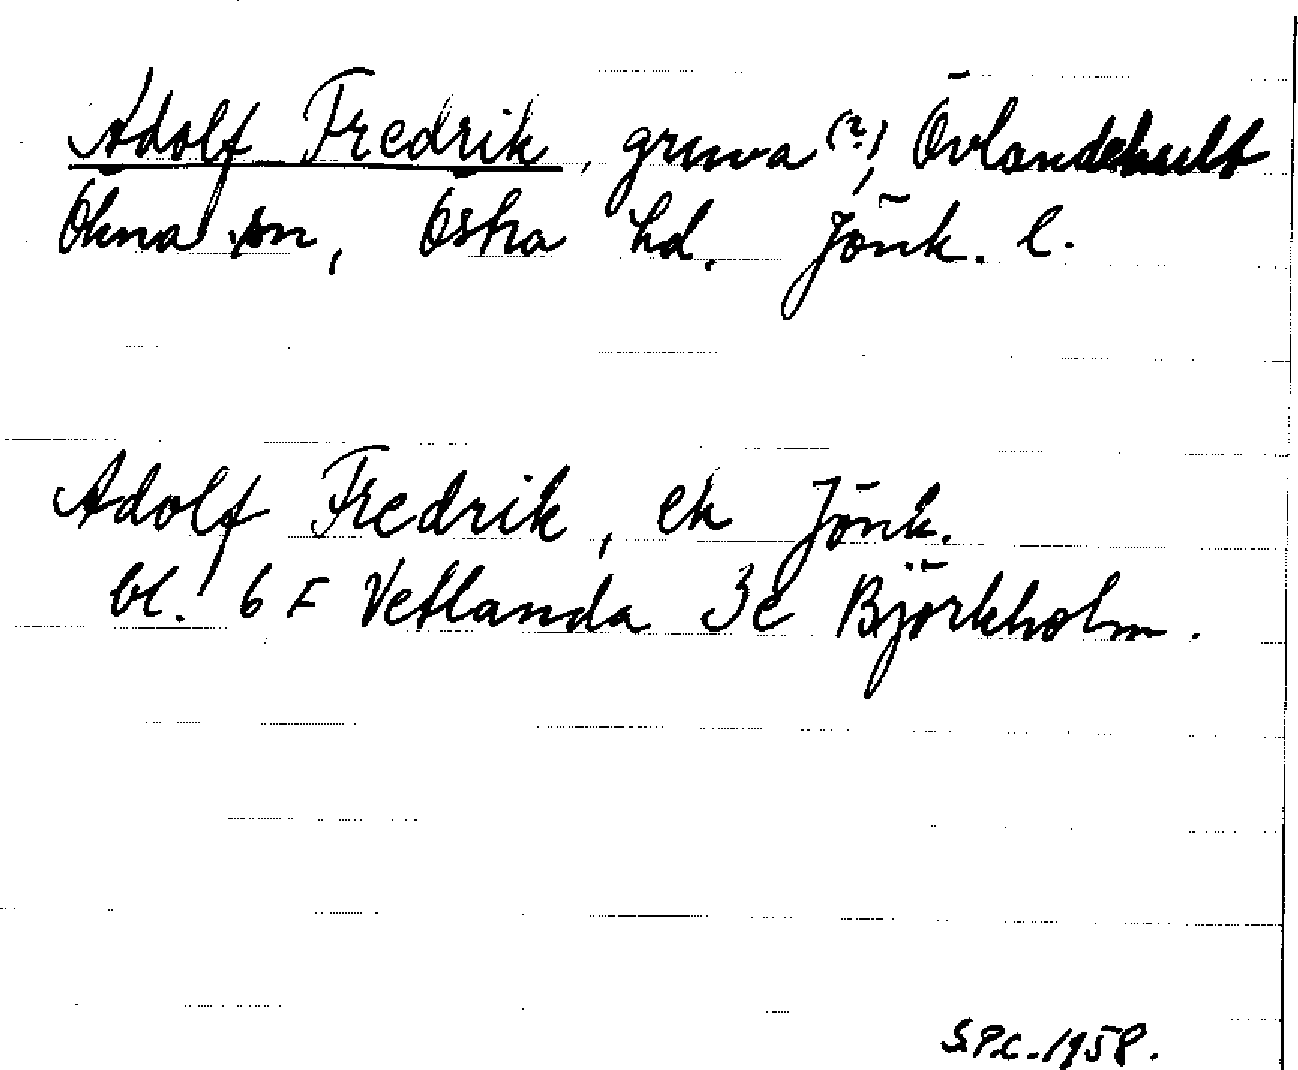 Adolf Fredrik, gruva (?), Övlandehult
Ökna sn, Östra hd. Jönk. l.
Adolf Fredrik, ek Jönk.
bl. 6 F Vetlanda 3e Björkholm.
S.P.C. 1958.